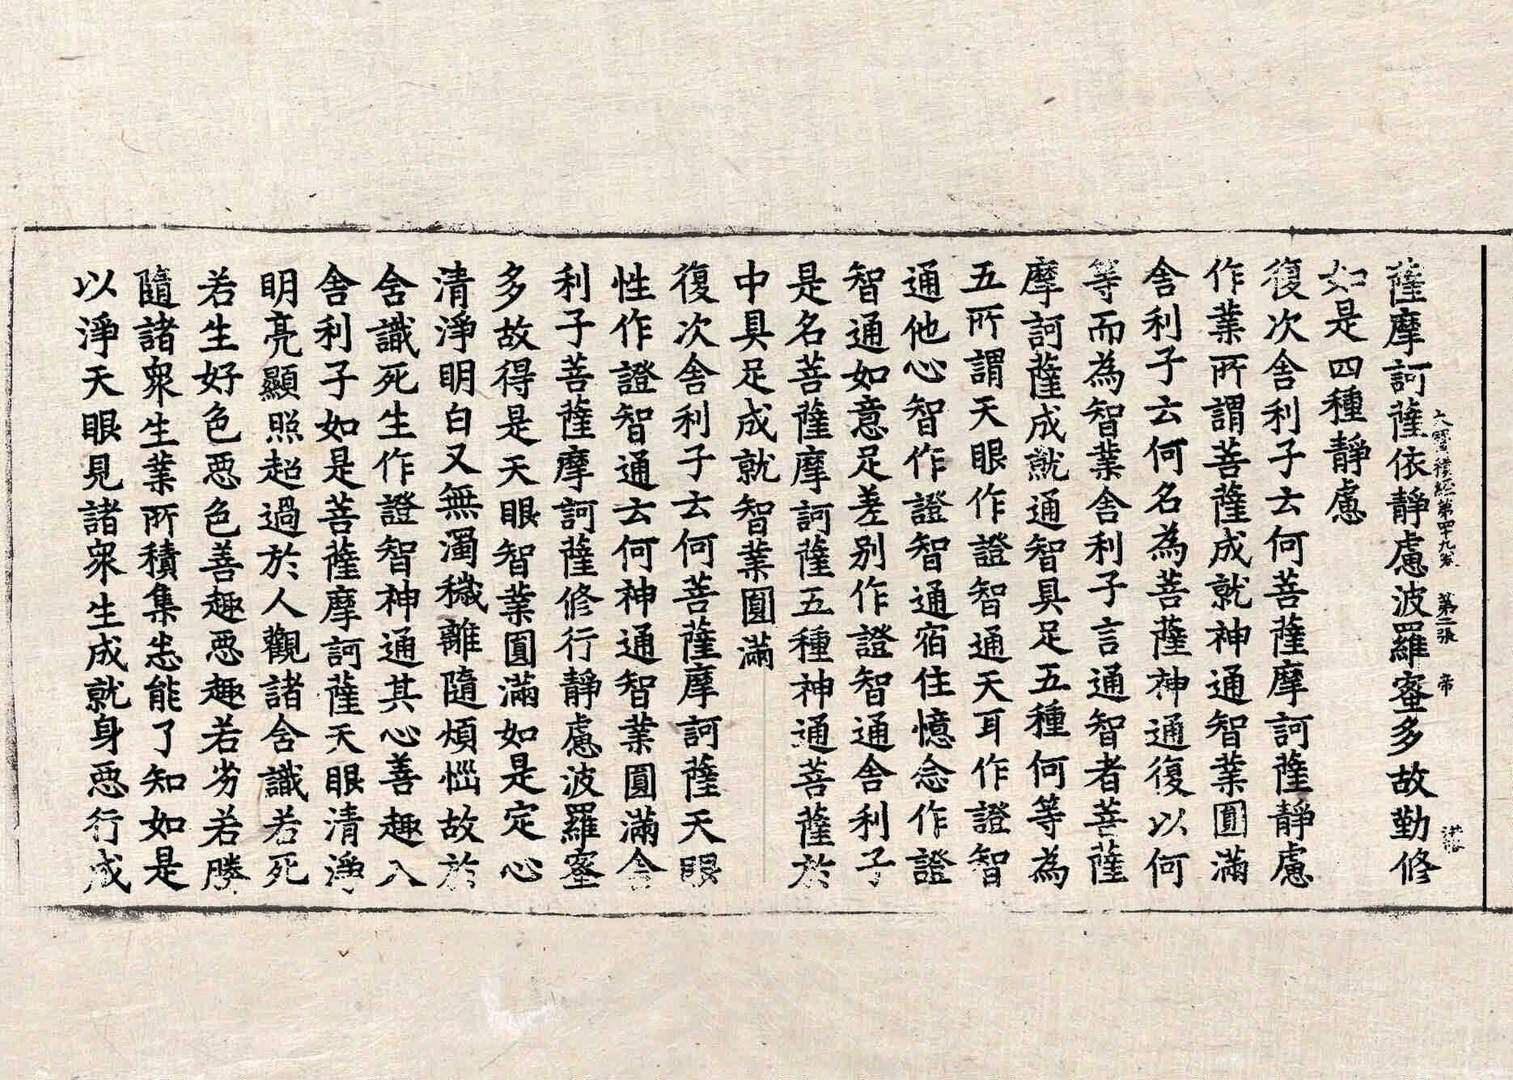 大寶積經第四十九卷　第二張　帝
薩摩訶薩依靜慮波羅蜜多故勤修
如是四種靜慮
復次舍利子云何菩薩摩訶薩靜慮
作業所謂菩薩成就神通智業圓滿
舍利子云何名為菩薩神通復以何
等而為智業舍利子言通智者菩薩
摩訶薩成就通智具足五種何等為
五所謂天眼作證智通天耳作證智
通他心智作證智通宿住憶念作證
智通如意足差別作證智通舍利子
是名菩薩摩訶薩五種神通菩薩於
中具足成就智業圓滿
復次舍利子云何菩薩摩訶薩天眼
性作證智通云何神通智業圓滿舍
利子菩薩摩訶薩修行靜慮波羅蜜
多故得是天眼智業圓滿如是定心
清淨明白又無濁穢離隨煩惱故於
含識死生作證智神通其心善趣入
舍利子如是菩薩摩訶薩天眼清淨
明亮顯照超過於人觀諸含識若死
若生好色惡色善趣惡趣若劣若勝
隨諸眾生業所積集悉能了知如是
以淨天眼見諸眾生成就身惡行成